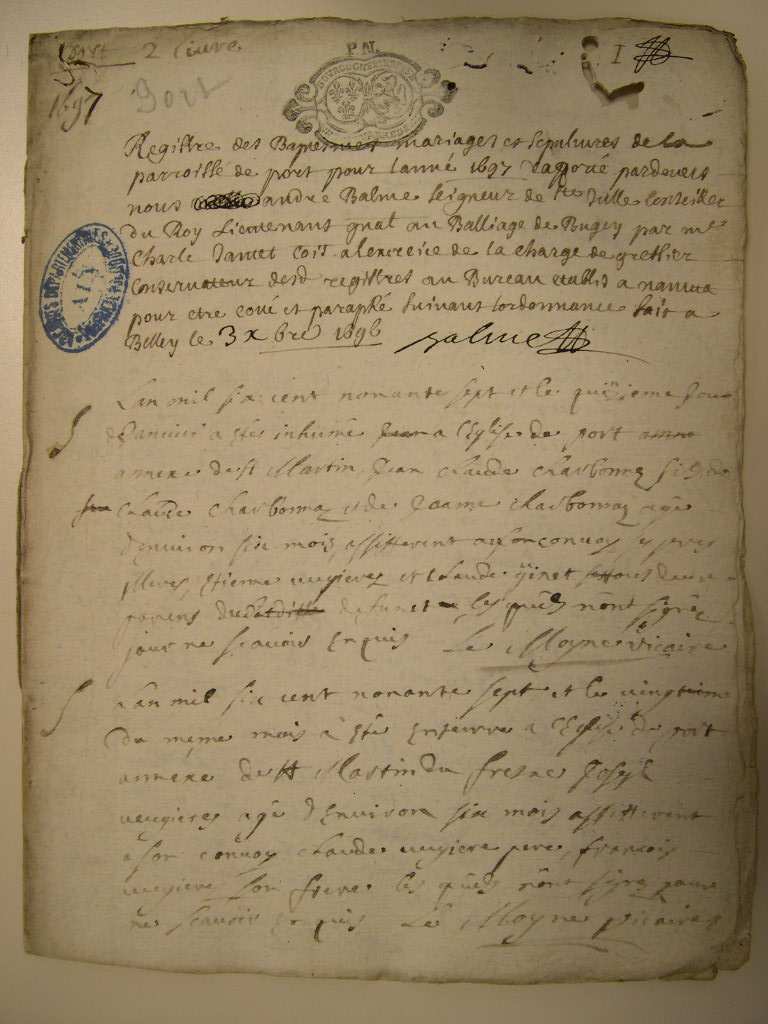 2 livre
P. N.
1
1697
Port
Registre des Baptesmes mariages et sepultures de la
parroisse de port pour lanné 1697 pardevers
nous andré Balme seigneur de Stes Julle Conseiller
du Roy Lieutenant gnal au Balliage de Bugey par mre
Charle Jantet a lexercice de la charge de greffier
Conservateur desd registres au Bureau establis a nantua
pour etre coué et paraphé suivant lordonnance fait a
Belley le 3 xbre 1696 Balme
ARCHIVES DEPARTEMENTALES AIN
Lan mil six cent nonante sept et le quinzieme jour
Janvier a este inhumé a l'Eglise de port
annexe de st Martin, Jean claude charbonnaz fils de
claude charbonnaz et de Jeanne charbonnaz agé
d'Environ six mois, assisterent a son convoy
Etienne vugieres et claude ginet tous deux
parens defunct les quels n'ont signé
pour ne scavoir Enquis Le Moyne vicaire
Lan mil six cent nonante sept et le vingtieme
Du meme mois a esté Enterré a l'Eglise de port
annexe de st Martin du fresne Joseph
vugieres agé d'Environ six mois assisterent
a son convoy claude vugiere pere, francois
vugiere son frere les quels n'ont signé pour
ne scavoir Enquis Le Moyne vicaire